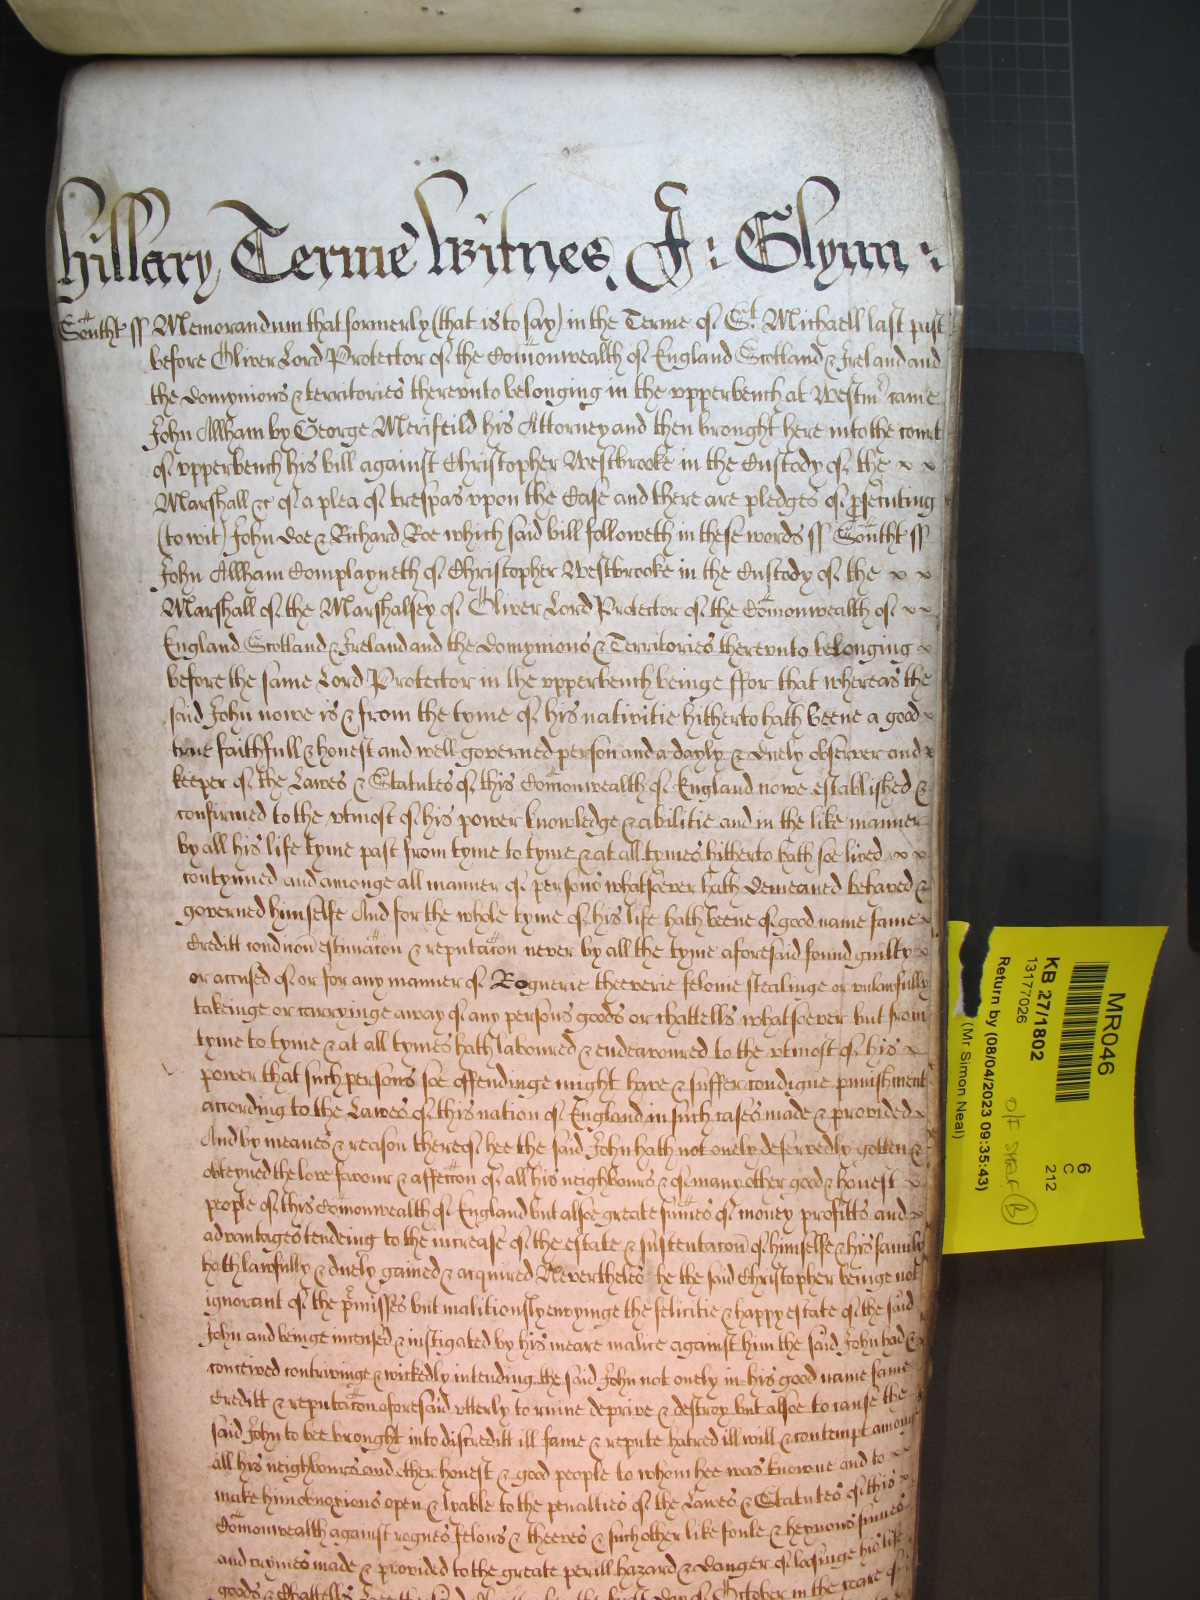 Hillary Terme Witnes J: Glynn:
Southt ss Memorandum that formerly (that is to say) in the Terme of St Michaell last past
before Oliver Lord Protector of the Comonwealth of England Scotland & Ireland and
the domynions & territories therevnto belonging in the vpperbench at Westmr came
John Allham by George Merifeild his Attorney and then brought here into the court
of vpperbench his bill against Christopher Westbrooke in the Custody of the x x
Marshall &c of a plea of trespas vpon the Case and there are pledges of prsecuting
(to wit) John Doe & Richard Roe which said bill followeth in these words ss Southt ss
John Allham Complayneth of Christopher Westbrooke in the Custody of the x x
Marshall of the Marshalsey of Oliver Lord Protector of the Comonwealth of x x
England Scotland & Ireland and the domynions & Territories therevnto belonging x
before the same Lord Protector in the vpperbench beinge ffor that whereas the
said John nowe is & from the tyme of his nativitie hitherto hath beene a good x
true faithfull & honest and well governed person and a dayly & duely observer and x
keeper of the Lawes & Statutes of this Comonwealth of England nowe established &
confirmed to the vtmost of his power knowledge & abilitie and in the like manner
by all his life tyme past from tyme to tyme & at all tymes hitherto hath soe lived x x
contynued and amonge all manner of persons whatsoever hath demeaned behaved &
governed himselfe And for the whole tyme of his life hath beene of good name fame x
Creditt condicon estimacon & reputacon never by all the tyme aforesaid found guilty x
or accused of or for any manner of Roguerie theeverie felonie stealinge or vnlawfully
takeinge or carryinge away of any persons goods or chattells whatsoever but from
tyme to tyme & at all tymes hath laboured & endeavoured to the vtmost of his x
power that such persons soe offendinge might have & suffer condigne punishment
according to the Lawes of this nation of England in such cases made & provided x
And by meanes & reason thereof hee the said John hath not onely deservedly gotten &
obteyned the love favour & affeccon of all his neighbours & of many other good & honest x
people of this Comonwealth of England but alsoe great sumes of money profitts and x
advantages tendeing to the increase of the estate & sustentacon of himselfe & his family
hath lawfully & duely gained & acquired Nevertheles he the said Christopher beinge not
ignorant of the prmisses but malitiously envyinge the felicitie & happy estate of the said
John and beinge incensed & instigated by his meare malice against him the said John had &
conceived contrivinge & wickedly intending the said John not onely in his good name fame
Creditt & reputacon aforesaid vtterly to ruine deprive & destroy but alsoe to cause the
said John to bee brought into discreditt ill fame & repute hatred ill will & contempt amongst
all his neighbours and other honest & good people to whom hee was knowne and to x x
make him obnoxious open & lyable to the penalties of the Lawes & Statutes of this x
Comonwealth against rogues felons & theeves & such other like foule & heynous sinnes
and crymes made & provided to the great perill hazard & danger of loosinge his life
goods & Chattells day of October in the yeare of
MR046
KB 27/1802
13177026
Return by (08/04/2023 09:35:43)
(Mr Simon Neal)
6
C
212
O/F
B